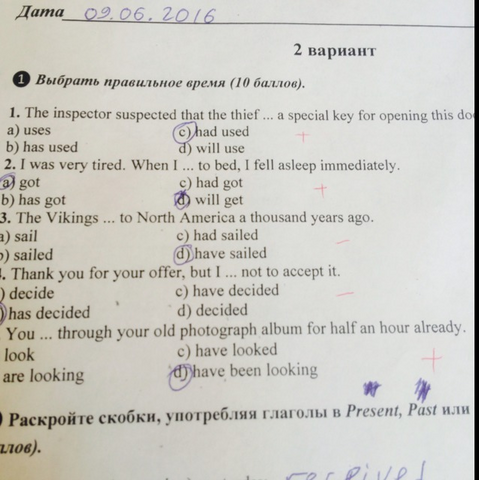 Дата 09.06.2016
2 вариант
1 Выбрать правильное время (10 баллов).
1. The inspector suspected that the thief ... a special key for opening this do
a) uses c) had used +
b) has used d) will use
2. I was very tired. When I ... to bed, I fell asleep immediately.
a) got c) had got +
b) has got d) will get
3. The Vikings ... to North America a thousand years ago.
a) sail c) had sailed –
b) sailed d) have sailed
. Thank you for your offer, but I ... not to accept it.
) decide c) have decided –
) has decided d) decided
You ... through your old photograph album for half an hour already.
look c) have looked +
are looking d) have been looking
Раскройте скобки, употребляя глаголы в Present, Past или
ллов).